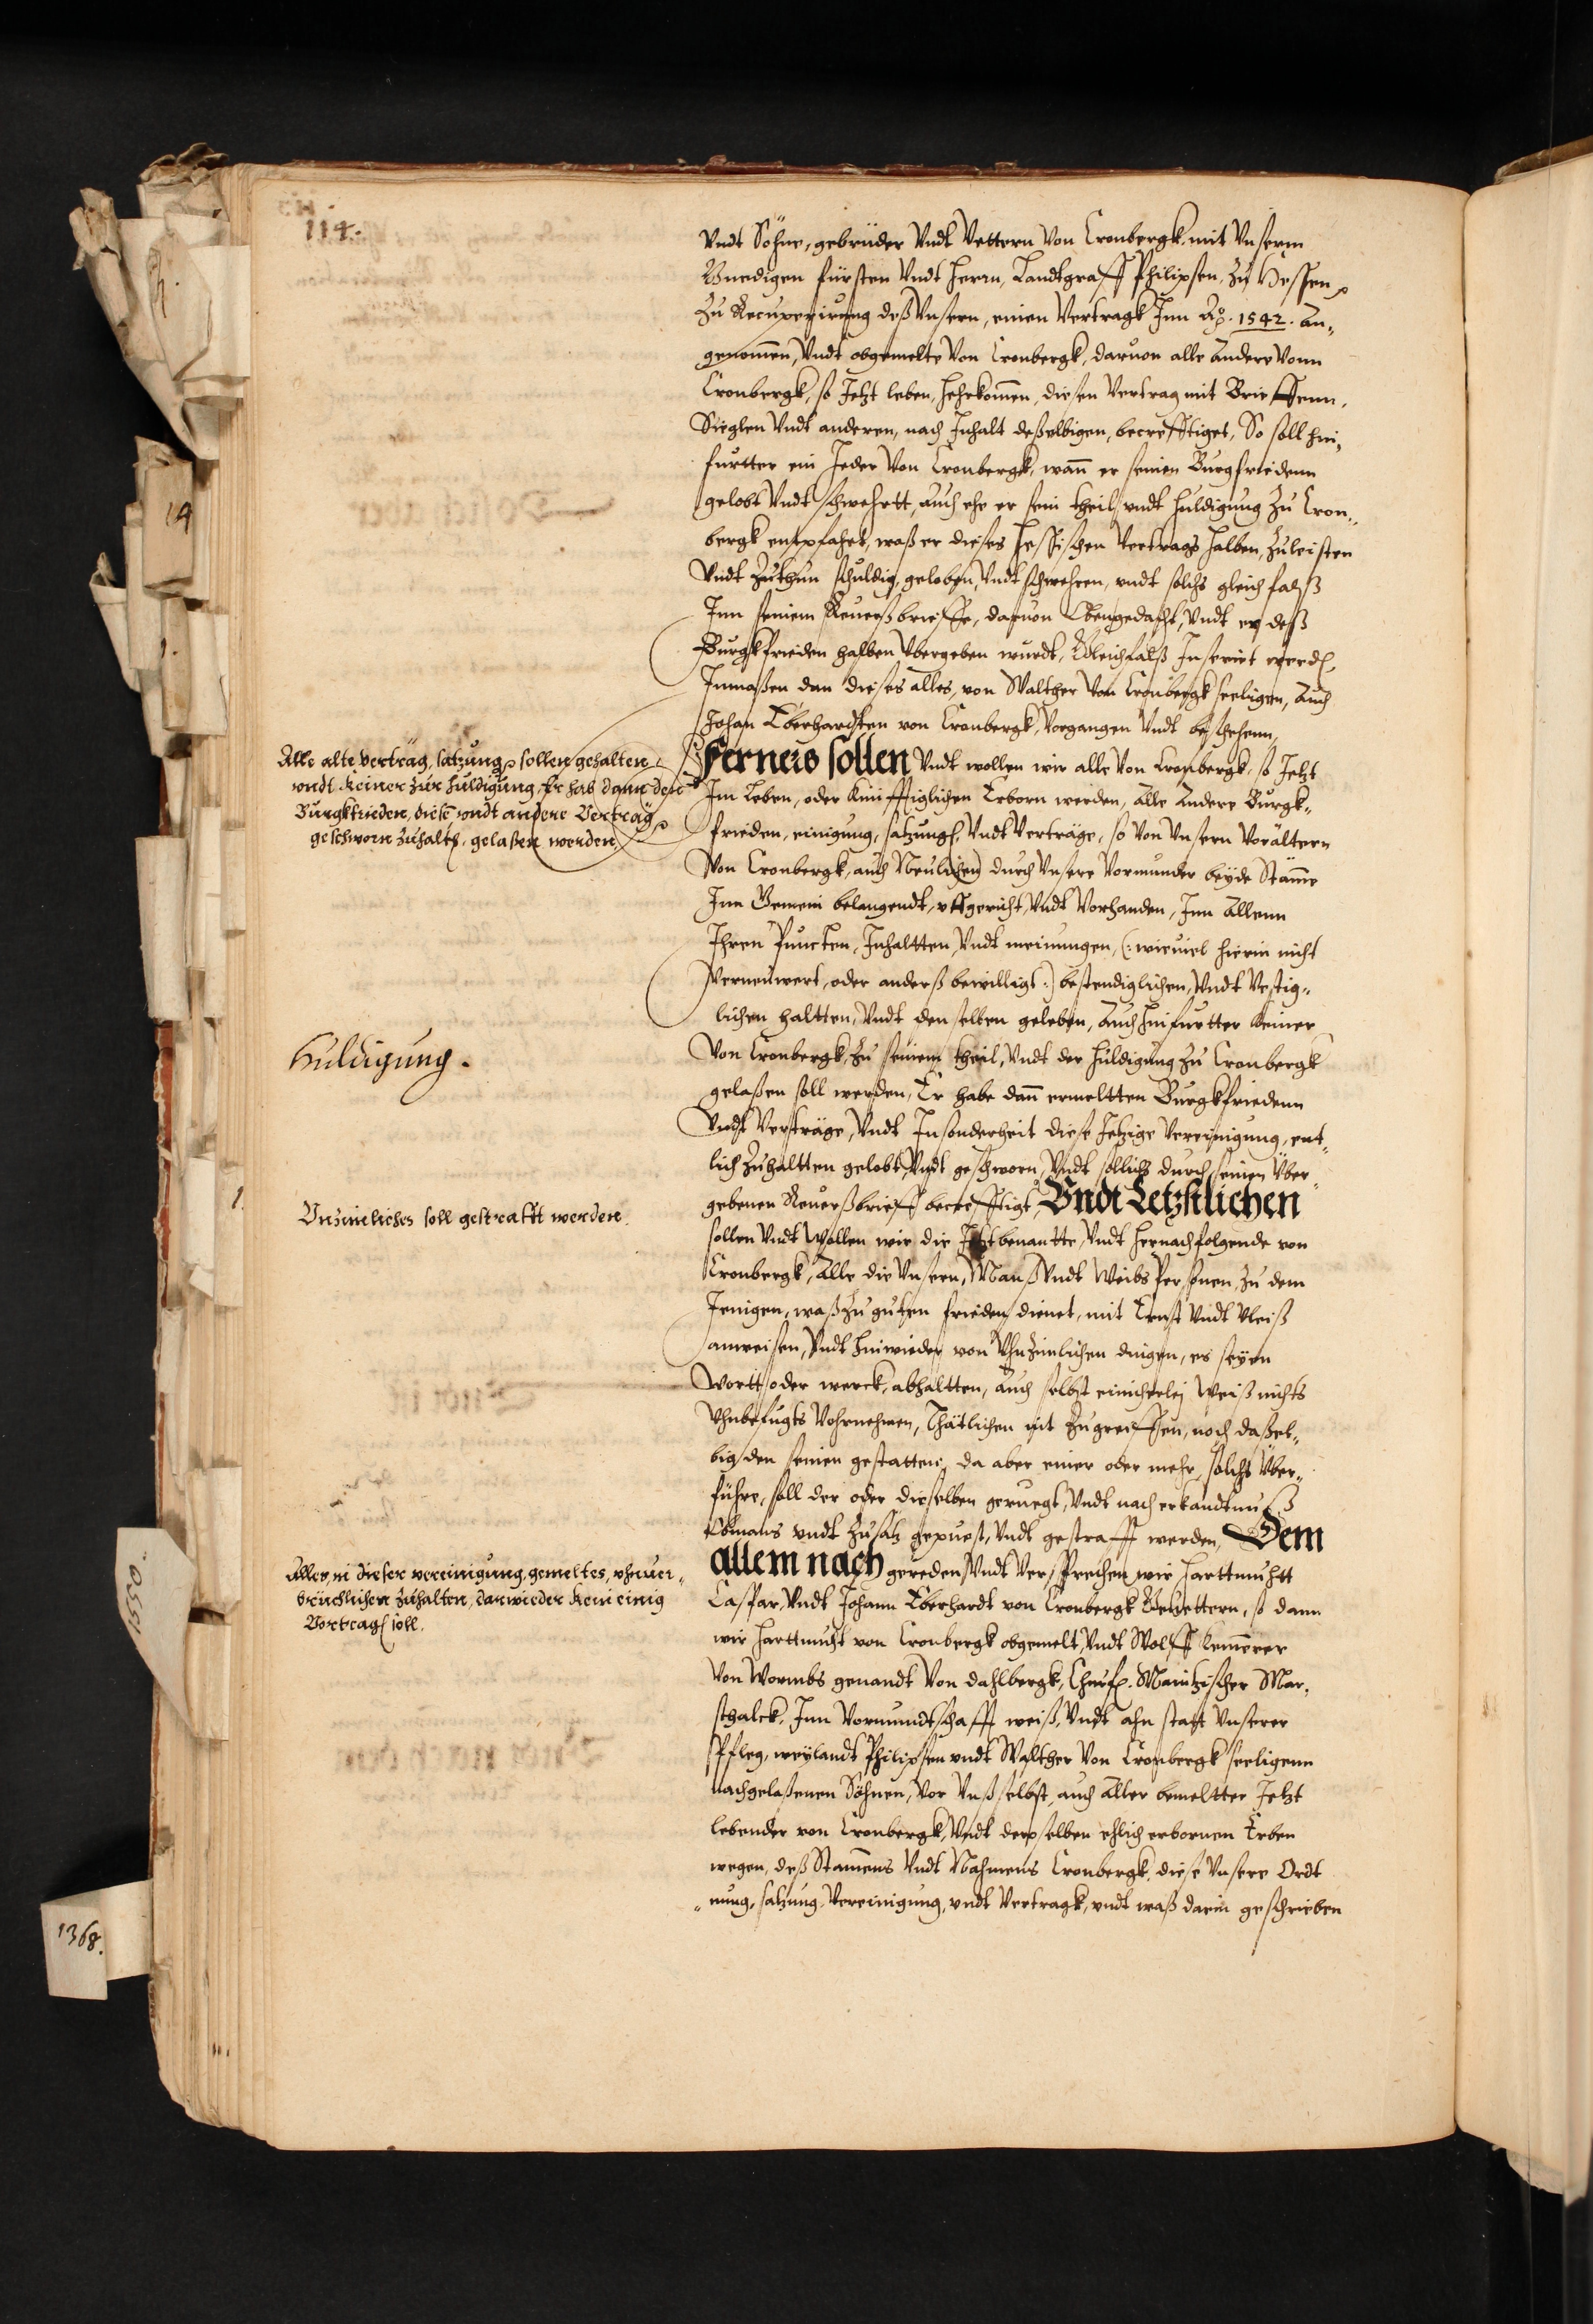 114.
Vndt Söhne, gebrüder Vndt Vettern Von Cronbergk, mit Vnserm
Gnedigen fürsten Vndt Herrn, Landtgraff Philipsen, zu Hessen
Zu Recuperirung deß Vnsern, einen Vertragk Inn Ao. 1542. An„
genommen, Vndt obgemelte Von Cronbergk, daruon alle Andere Vonn
Cronbergk, so Jetzt leben, hehrkommen, diesen Vertrag mit Brieffenn,
Sieglen Vndt anderen, nach Inhalt deßelbigen, becrefftiget, So soll hin„
furtter ein Jeder Von Cronbergk, wann er seinen Burgfriedenn
gelobt Vndt schwehrtt, auch ehe er sein theil vndt huldigung zu Cron„
bergk entpfahet, waß er dieses Hessischen Vertrags halben, zuleisten
Vndt Zuthun schuldig, geloben, Vndt schwehren, vndt solchs gleichfalß
Inn seinem Reuerßbrieffe, daruon Obengedacht, Vndt er deß
Burgkfrieden halben Vbergeben wurdt, Gleichfalß Inserirt werden,
Inmaßen dan dieses alles, von Walther Von Cronbergk seeligen, Auch
Johan Eberhardten von Cronbergk Vorgangen Vndt beschehenn,
Alle alte verträg, satzung sollen gehalten
vndt keiner zur huldigung, Er hab dann den
Burgkfrieden, diese vndt andere Verträg
geschworn zuhalten, gelaßen werden.
Ferners sollen Vndt wollen wir alle Von Cronbergk, so Jetzt
Im Leben, oder Künfftiglichen Erborn werden, Alle Andere Burgk„
frieden, einigung, satzungen, Vndt Verträge, so Von Vnsern Vorältern
Von Cronbergk, auch Neulichen durch Vnsere Vormunder beyde Stämme
Inn Gemein belangendt, vffgericht, Vndt Vorhanden, Inn Allenn
Ihren Puncten, Inhaltten, Vndt meinungen, (: wieuiel hierin nicht
Verneuwert, oder anderß bewilligt :) bestendiglichen, Vndt Vestig„
lichen haltten, Vndt denselben geleben, Auch hinfurtter Keiner
Huldigung.
Von Cronbergk, zu seinem theil, Vndt der huldigung zu Cronbergk
gelaßen soll werden, Er habe dann ermeltten Burgkfriedenn
Vndt Verträge, Vndt Insonderheit diese Jetzige Vereinigung, ent„
lich zuhaltten gelobt, Vndt geschworn, Vndt sollichs durch seinen Vber„
Vnzimliches soll gestrafft werden.
gebenen Reuerßbrieff becrefftigt, Vndt Letzstlichen
sollen Vndt Wollen wir die Jetztbenantte, Vndt hernachfolgende von
Cronbergk, Alle die Vnsern, Manß Vndt Weibs Personen, zu dem
Jenigen, waß zu guten frieden dienet, mit Ernst Vndt Vleiß
anweisen, Vndt hinwieder von Vhnzimlichen dingen, es seyen
Wortt oder werck, abhaltten, auch selbst einicherley Weiß nichts
Vhnbefugts Vohrnehmen, Thätlichen nit Zugreiffen, noch daßel„
big den seinen gestatten, da aber einer oder mehr, solchs Vber„
führe, soll der oder dieselben geruegt, Vndt nach erkandtnuß
Obmans vndt Zusatz gepuest, Vndt gestrafft werden, Dem
Alles, in dieser vereinigung, gemeltes, vhnuer„
brüchlichen zuhalten, darwieder kein einig
Vortragen soll.
allem nach gereden Vndt Versprechen wir Harttmuhtt
Caspar, Vndt Johann Eberhardt von Cronbergk Geuettern, so dann
wir Harttmuht von Cronbergk obgemelt, Vndt Wolff Kemmerer
Von Wormbs genandt Von Dahlbergk, Churf. Maintzischer Mar„
schalck, Inn Vormundtschafft weiß, Vndt ahn statt Vnserer
Pfleg, weylandt Philipsen vndt Walther Von Cronbergk seeligenn
nachgelaßenen Söhnen, Vor Vnß selbst, auch Aller bemeltter Jetzt
lebender von Cronbergk, Vndt derselben ehlich erbornen Erben
wegen, deß Stammens Vndt Nahmens Cronbergk, diese Vnsere Ordt
„nung, satzung, Vereinigung, vndt Vertragk, vndt waß darin geschrieben
14
1.
1550.
1368.